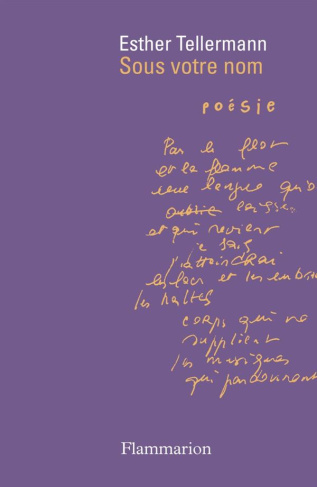 Esther Tellermann
Sous votre nom
poésie
Par la fleur
et la flamme
une langue qu'o
oublie
et qui revient
je sais
j'attoindrai
et les
les haltes
corps qui ne
supplient
les musiques
qui pardonnent
Flammarion